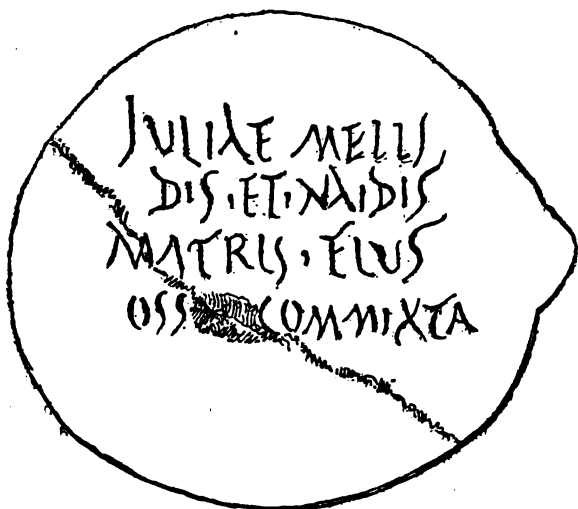 JULIAE MELLI
DIS · ET · NAIDIS
MATRIS · EIUS
OSS COMMIXTA